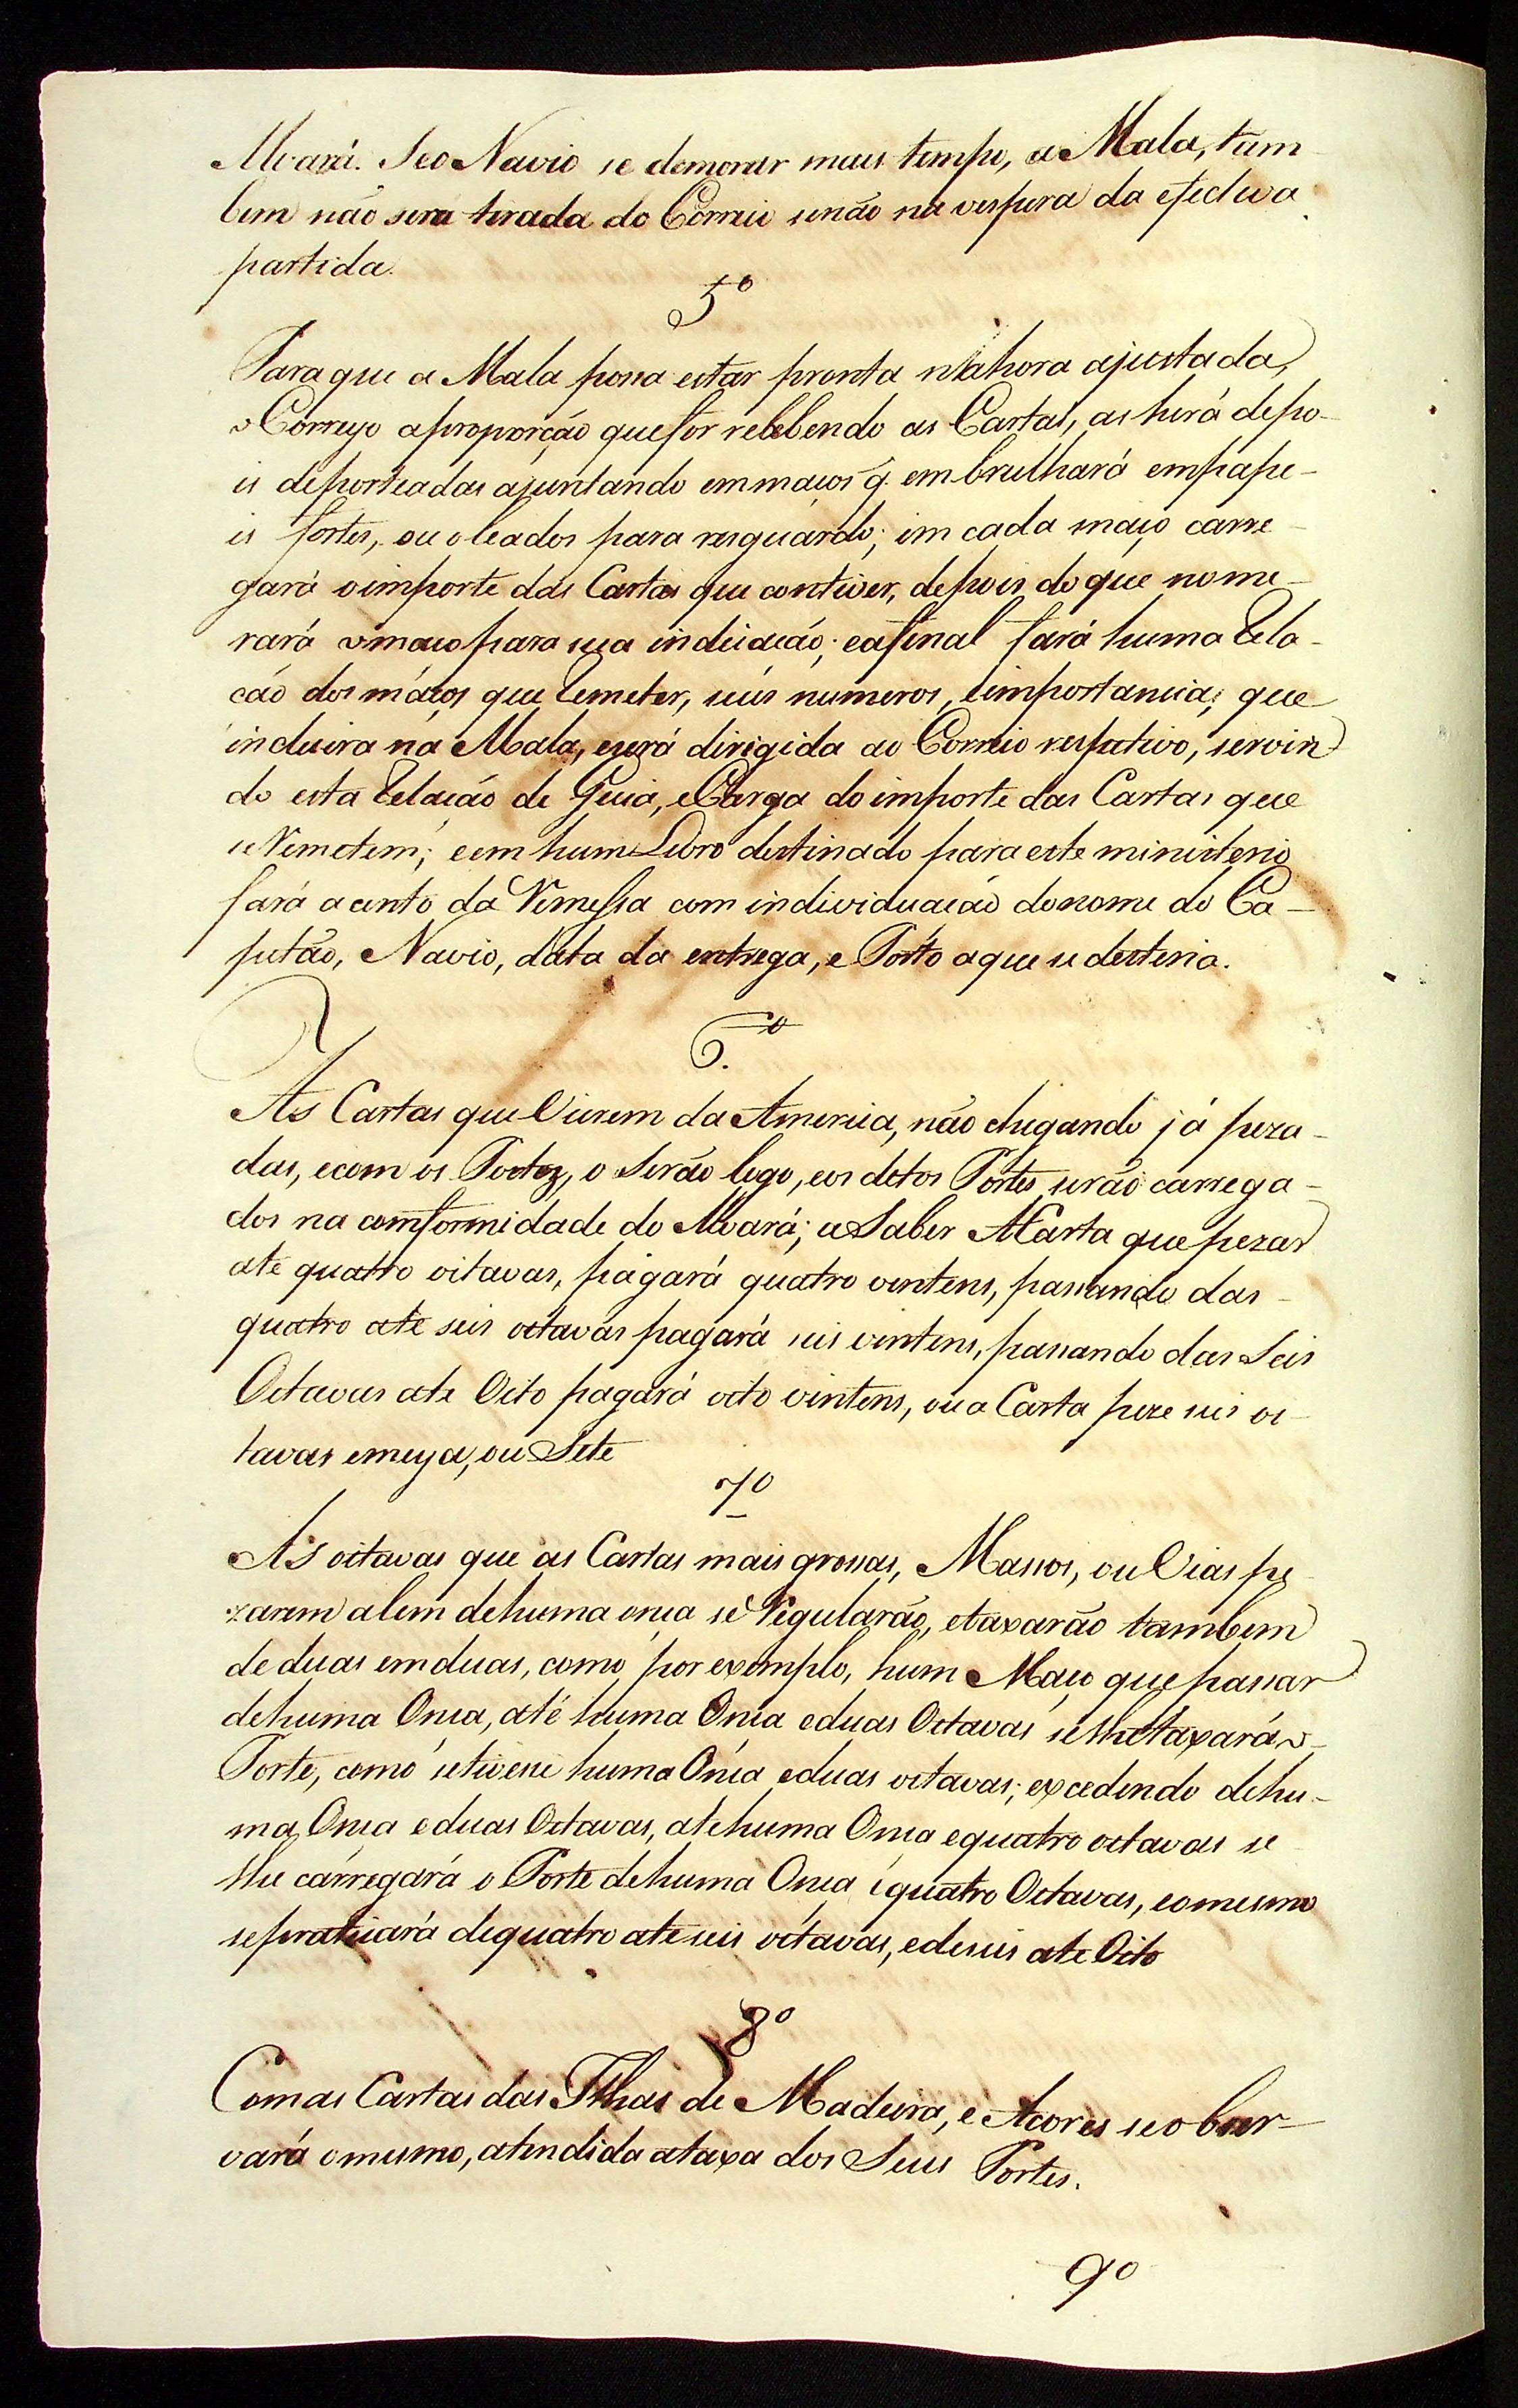 Alvará. Se o Navio se demorar mais tempo, a Mala, tam
bem não será tirada do Correio senão na vespera da efectiva
partida.
5º
Para que a Mala possa estar pronta na hora ajustada,
o Correyo a proporção que for recebendo as Cartas, as hirá depo-
is de porteadas ajuntando em maços q. embrulhará em pape-
is fortes, ou oleados para resguardo; em cada maço carre-
gará o importe das Cartas que contiver, depois do que nome-
rará o maço para sua indicação; e afinal fará huma Rela-
cão dos maços que Remeter, seus numeros, e importancia; que
incluira na Mala, e será dirigida ao Correio respetivo, servin
do esta Relação de Guia, e Carga do importe das Cartas que
se Remetem; e em hum Livro destinado para este ministerio
fará acento da Remessa com individuação do nome do Ca-
pitão, Navio, data da entrega, e Porto a que se destena.
6.º
As Cartas que Vierem da America, não chegando já peza-
das, e com os Portez, o Serão logo, e os ditos Portes serão carrega-
dos na comformidade do Alvará; a Saber A Carta que pezar
ate quatro oitavas, pagará quatro vintens, passando das
quatro ate seis oitavas pagará seis vintens, passando das Seis
Oitavas ate Oito pagará oito vintens, ou a Carta peze seis oi-
tavas e meya, ou Sete
7º
As oitavas que as Cartas mais grossas, Massos, ou Vias pe
zarem alem de huma onça se Regularão, e taxarão tambem
de duas em duas, como por exemplo, hum Maço que passar
de huma Onça, até huma Onça e duas Oitavas se lhe taxará o
Porte, como se tivesse huma Onça e duas oitavas; excedendo de hu-
ma Onça e duas Oitavas, ate huma Onça e quatro oitavas se
lhe carregará o Porte de huma Onça e quatro Oitavas, e o mesmo
se praticará de quatro ate seis oitavas, e de seis ate Oito
8º
Com as Cartas das Ilhas de Madeira, e Açores se obser-
vará o mesmo, atendida a taxa dos Seus Portes.
9º